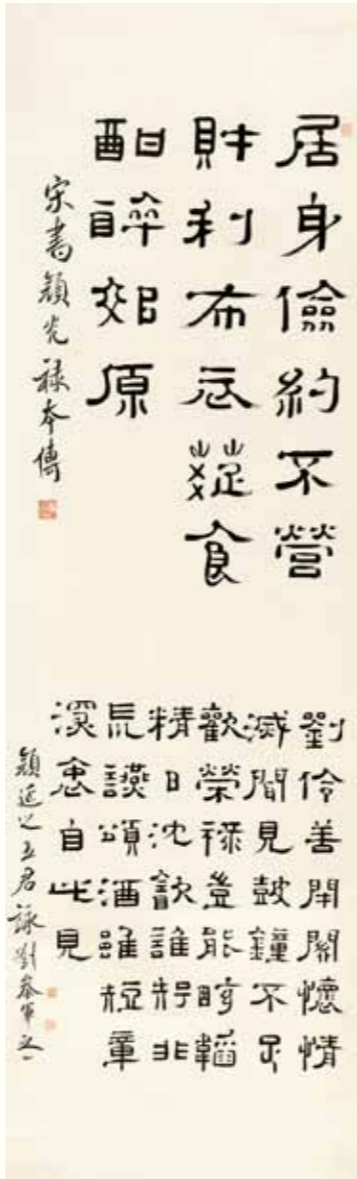 居身儉約不營
財利布衣蔬食
酣醉郊原
宋書顏光祿本傳
劉伶善閉關懷情
滅聞見鼓鐘不足
歡榮祿豈能眩韜
精日沈飲誰知非
荒讌頌酒雖短章
深衷自此見
顏延之五君詠劉參軍之一